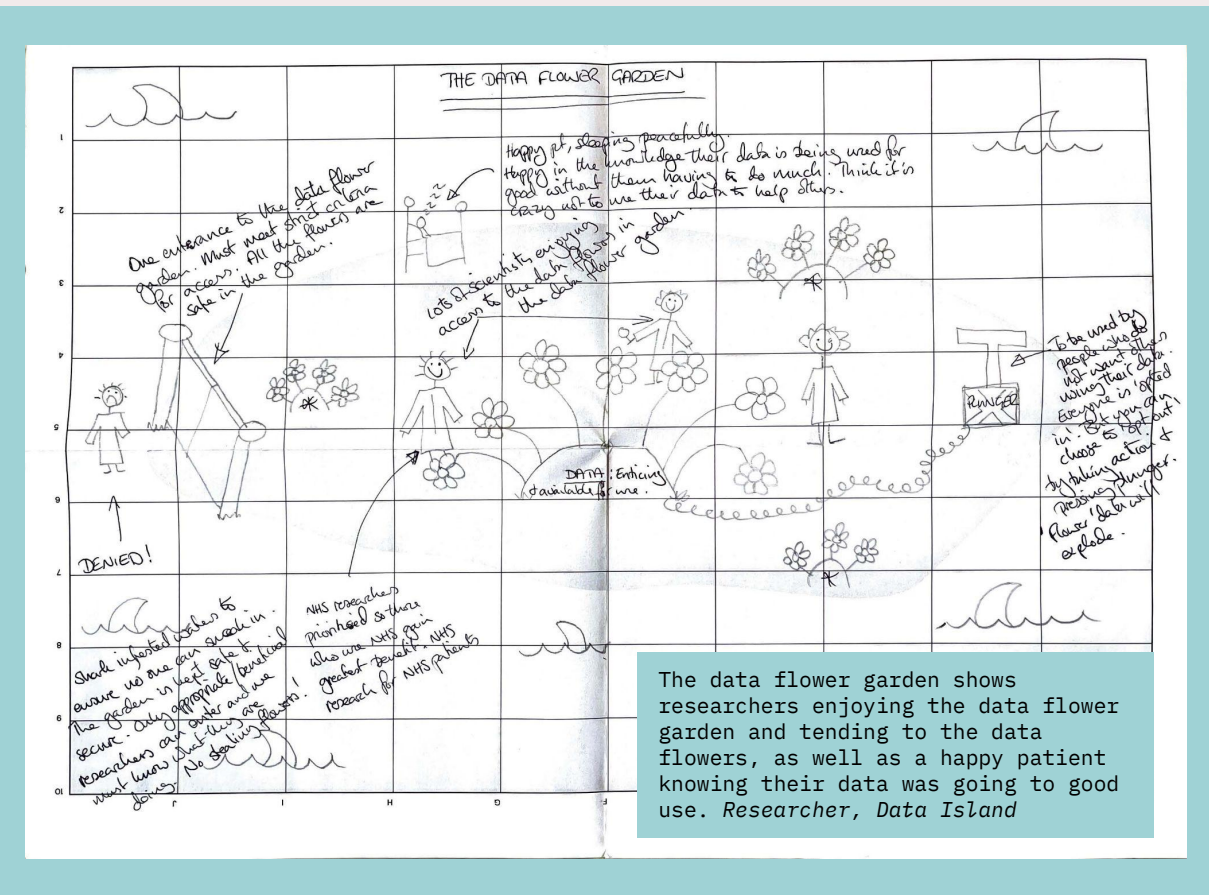 THE DATA FLOWER GARDEN
Happy pt, sleeping peacefully.
Happy in the knowledge their data is being used for
good without them having to do much. Think it's
crazy not to use their data to help others.
One enterance to the data flower
garden. Must meet strict criteria
for access. All the flowers are
safe in the garden.
Lots of scientists enjoying
access to the data flowers in
the data flower garden.
To be used by
people who do
not want others
using their data.
Everyone is 'opted
in'. But you can
choose to 'opt out'
by taking action &
pressing plunger.
Flower 'data' will
explode.
PLUNGER
DATA: Enticing
& available for use.
DENIED!
Shark infested waters to
ensure no one can sneak in.
The garden is kept safe &
secure. Only appropriate/beneficial
researchers can enter and we
must know what they are
doing. No stealing flowers!
NHS researchers
prioritised so those
who use NHS gain
greatest benefit. NHS
research for NHS patients
1
2
3
4
5
6
7
8
9
10
J
I
H
G
F
The data flower garden shows
researchers enjoying the data flower
garden and tending to the data
flowers, as well as a happy patient
knowing their data was going to good
use. Researcher, Data Island